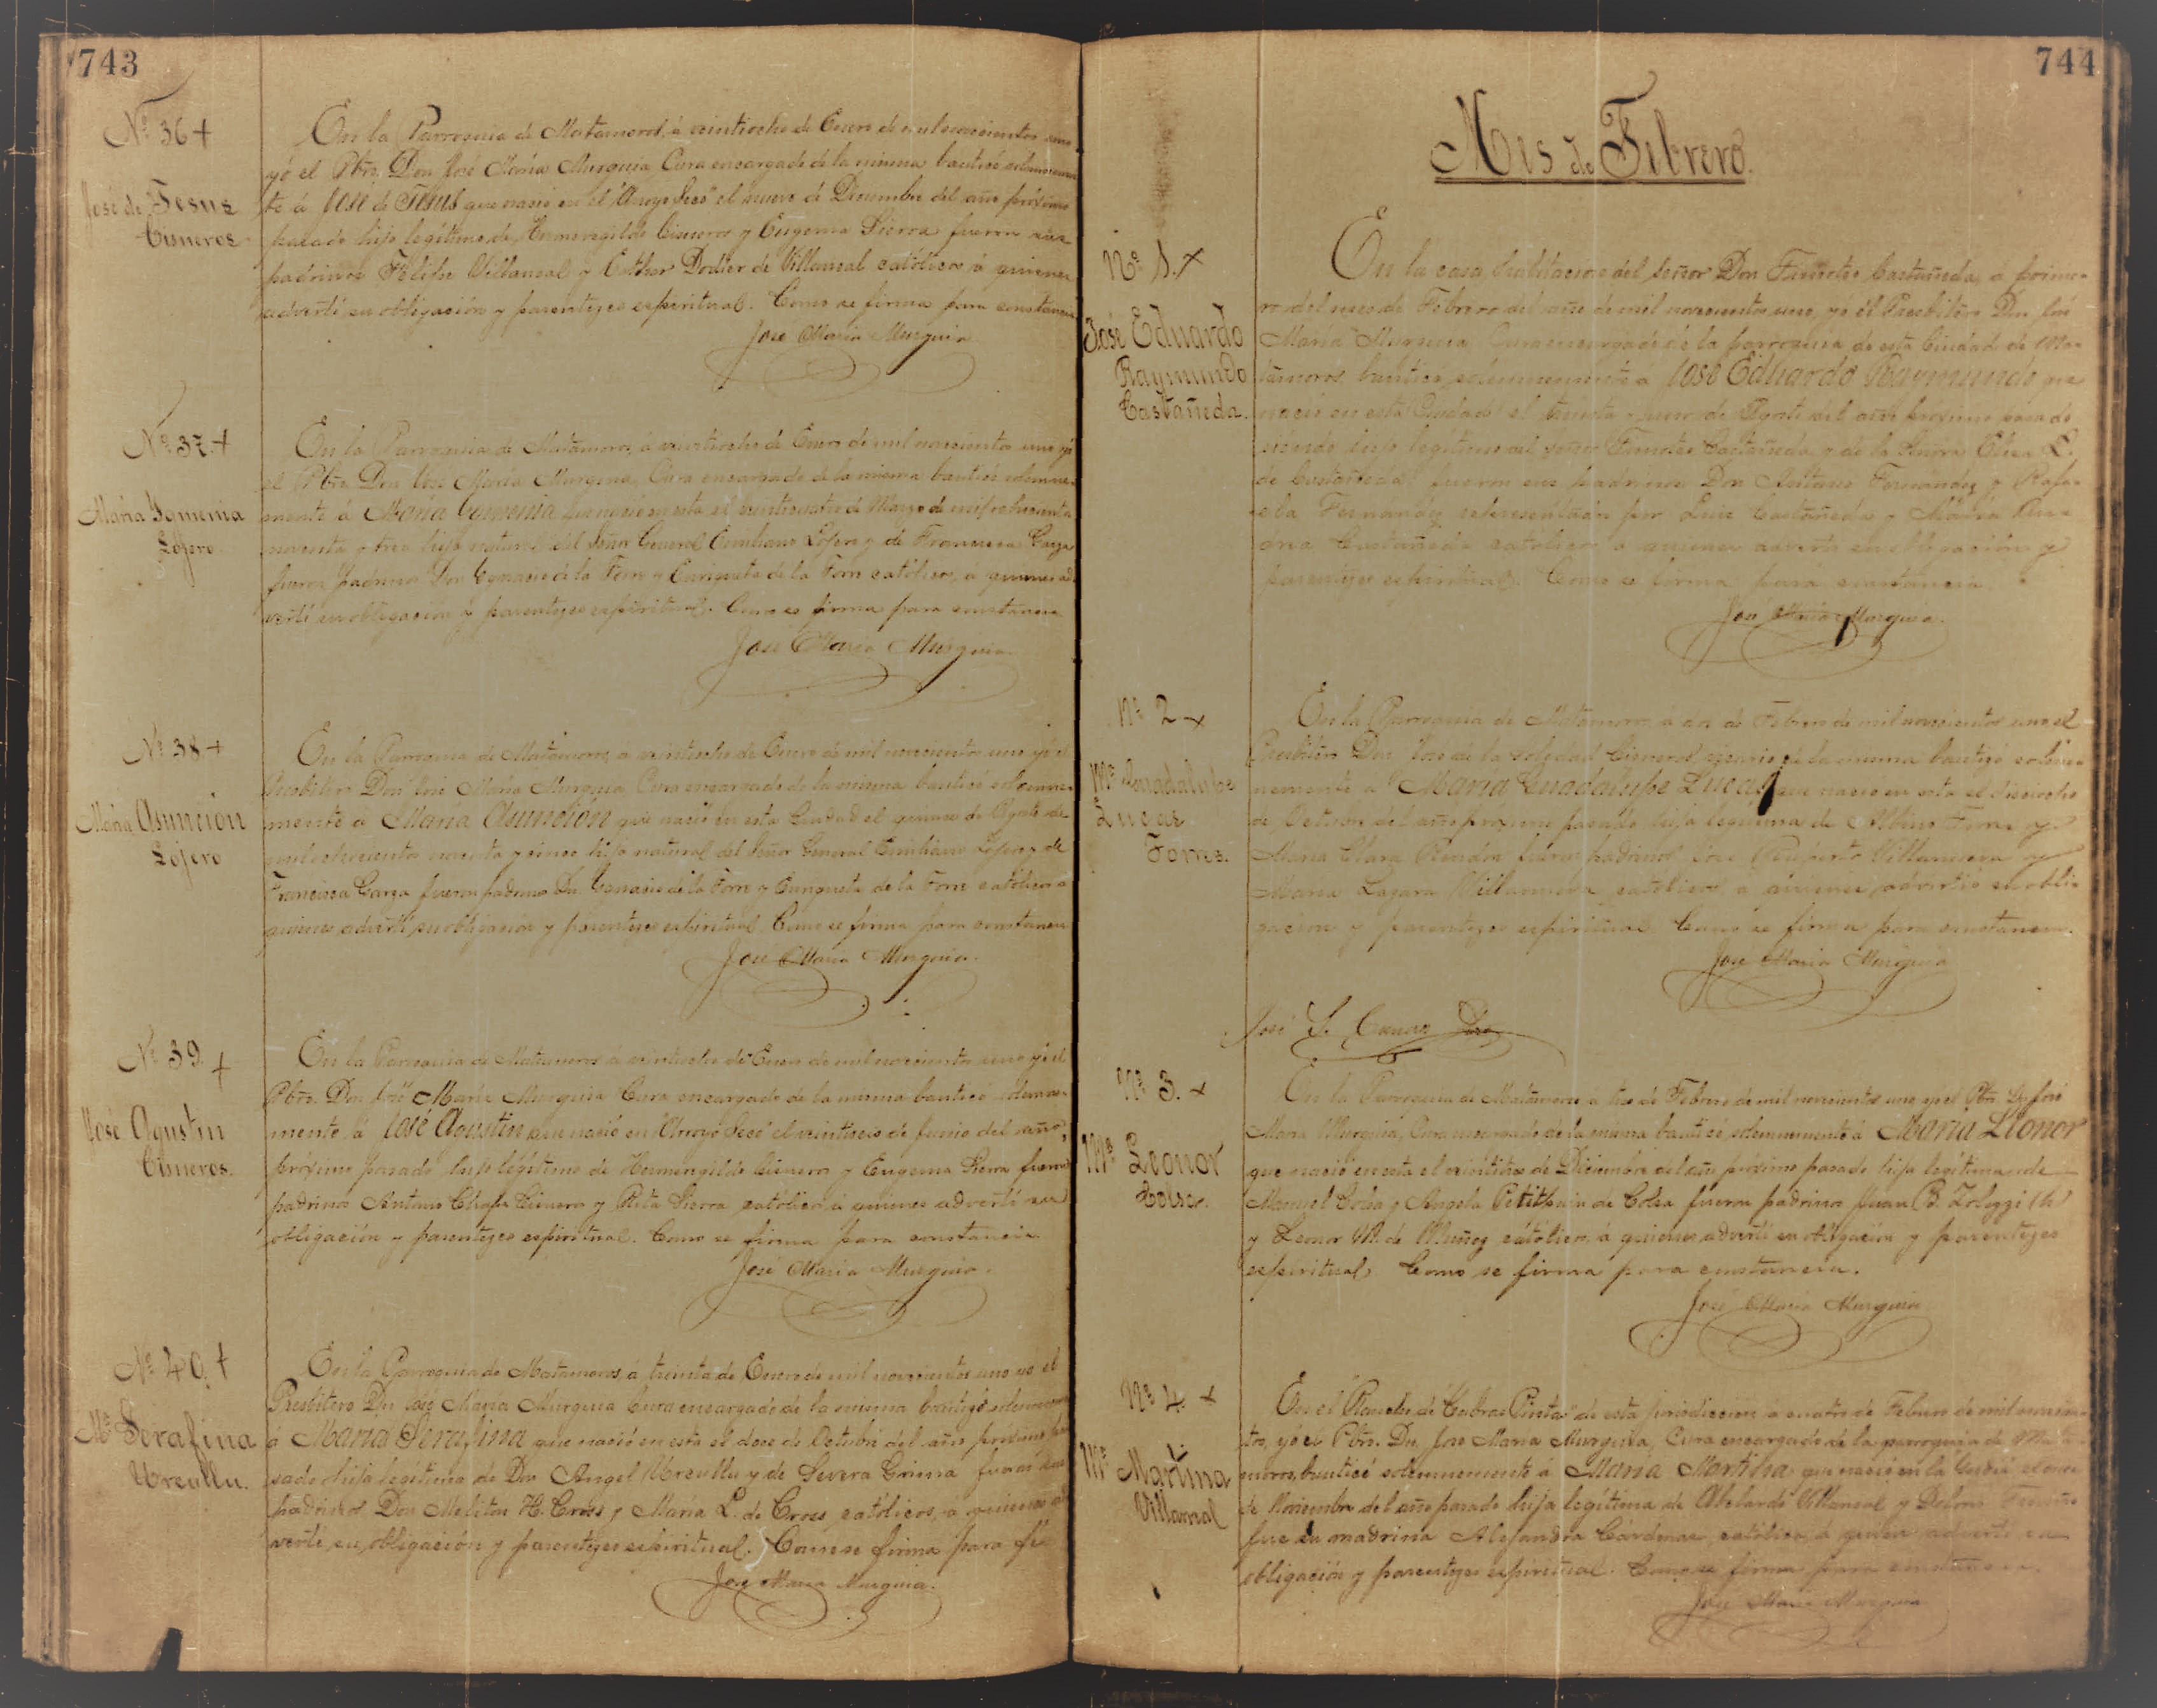 743
Nº 36 +
José de Jesus
Cisneros.
En la Parroquia de Matamoros, á veintiocho de Enero de mil novecientos uno
yó el Pbro. Don José María Murguia Cura encargado de la misma bauticé solemnemen
te á José de Jesus que nació en el "Arroyo Seco" el nueve de Diciembre del año próximo
pasado hijo legítimo de Hermenegildo Cisneros y Eugenia Sierra fueron sus
padrinos Felipe Villarreal y Esther Dodier de Villarreal católicos á quienes
advertí su obligación y parentezco espiritual. Como se firma para constancia
José María Murguia
Nº 37. +
María
Lojero
En la Parroquia de Matamoros, á veintiocho de Enero de mil novecientos uno yó
el Pbro. Don José María Murguia, Cura encargado de la misma bauticé solemne-
mente á María que nació en esta el veinticuatro de Marzo de mil ochocientos
noventa y tres hija natural del Señor General Emiliano Lojero y de Francisca Garza
fueron padrinos Don Ygnacio de la Torre y Enriqueta de la Torre católicos, á quienes ad-
vertí su obligación y parentezco espiritual. Como se firma para constancia
José María Murguia.
Nº 38 +
María Asunción
Lojero
En la Parroquia de Matamoros, a veintiocho de Enero de mil novecientos uno yó el
Presbítero Don José María Murguia Cura encargado de la misma bauticé solemne-
mente á María Asunción que nació en esta Ciudad el quince de Agosto de
mil ochocientos noventa y cinco hija natural del Señor General Emiliano Lojero y de
Francisca Garza fueron padrinos Dn. Ygnacio de la Torre y Enriqueta de la Torre católicos a
quienes advertí su obligación y parentezco espiritual. Como se firma para constancia
José María Murguia.
Nº 39. +
José Agustin
Cisneros.
En la Parroquia de Matamoros a veintiocho de Enero de mil novecientos uno yó el
Pbro. Don José María Murguia Cura encargado de la misma bauticé solemne-
mente á José Agustin que nació en "Arroyo Seco" el veintiseis de Junio del año,
próximo pasado hijo legítimo de Hermenegildo Cisneros y Eugenia Sierra fueron
padrinos Antonio Chapa Cisneros y Rita Sierra católicos á quienes advertí su
obligación y parentezco espiritual. Como se firma para constancia
José María Murguia.
Nº 40. +
Mª Serafina
Urcullu.
En la Parroquia de Matamoros, á treinta de Enero de mil novecientos uno yó el
Presbítero Dn José María Murguia Cura encargado de la misma bautizé solemnemente
a María Serafina que nació en esta el doce de Octubre del año próximo pa
sado hija legítima de Don Angel Urcullu y de Severa Grima fueron sus
padrinos Don Meliton H. Cross y María L. de Cross católicos, a quienes ad
vertí, su obligación y parentezco espiritual. Como se firma para fé
José María Murguia.
744
Mes de Febrero.
Nº 1. x
José Eduardo
Raymundo
Castañeda.
En la casa habitacion del Señor Don Timoteo Castañeda, a prime-
ro del mes de Febrero del año de mil novecientos uno, yó él Presbítero Don José
María Murguia Cura encargado de la parroquia de esta Ciudad de Ma-
tamoros bauticé solemnemente a José Eduardo Raymundo que
nació en esta Ciudad el treinta y uno de Agosto del año próximo pasado
siendo hijo legítimo del Señor Timoteo Castañeda y de la Señora Elisa L.
de Castañeda fueron sus padrinos Don Antonio Fernandez y Rafa-
ela Fernandez representados por Luis Castañeda y María
Castañeda católicos a quienes advertí su obligación y
parentezco espiritual. Como se firma para constancia
José María Murguia.
Nº 2 x
Mª Guadalupe
Lucas
Torres.
En la Parroquia de Matamoros, a dos de Febrero de mil novecientos uno el
Presbítero Don José de la Soledad Cisneros, vicario de la misma bautizó solem-
nemente a María Guadalupe Lucas que nació en esta el dieciocho
de Octubre del año próximo pasado hija legítima de Albino Torres y
María Clara fueron padrinos José Ruperto Villanueva y
María Lazara Villanueva católicos a quienes advirtió su obli-
gación y parentezco espiritual. Como se firma para constancia.
José María Murguia
José S.
Nº 3. x
Mª Leonor
Colsa.
En la Parroquia de Matamoros a tres de Febrero de mil novecientos uno yó el Pbro. Dn José
María Murguia, Cura encargado de la misma bauticé solemnemente á María Leonor
que nació en esta el veintitres de Diciembre del año próximo pasado hija legítima de
Manuel Colsa y Angela Petitpain de Colsa fueron padrinos Juan B. Zolezzi (h)
y Leonor M. de Muñoz católicos á quienes advertí su obligación y parentezco
espiritual. Como se firma para constancia.
José María Murguia
Nº 4. x
Mª Martina
Villarreal
En el Rancho de "Cabras Pintas" de esta jurisdiccion a cuatro de Febrero de mil novecien-
tos, yó el Pbro. Dn José María Murguia, Cura encargado de la parroquia de Mata-
moros, bauticé solemnemente á María Martina que nació en la el once
de Noviembre del año pasado hija legítima de Abelardo Villarreal y Dolores Treviño
fue su madrina Alejandra Cárdenas católica, á quien advertí su
obligación y parentezco espiritual. Como se firma para constancia.
José María Murguia